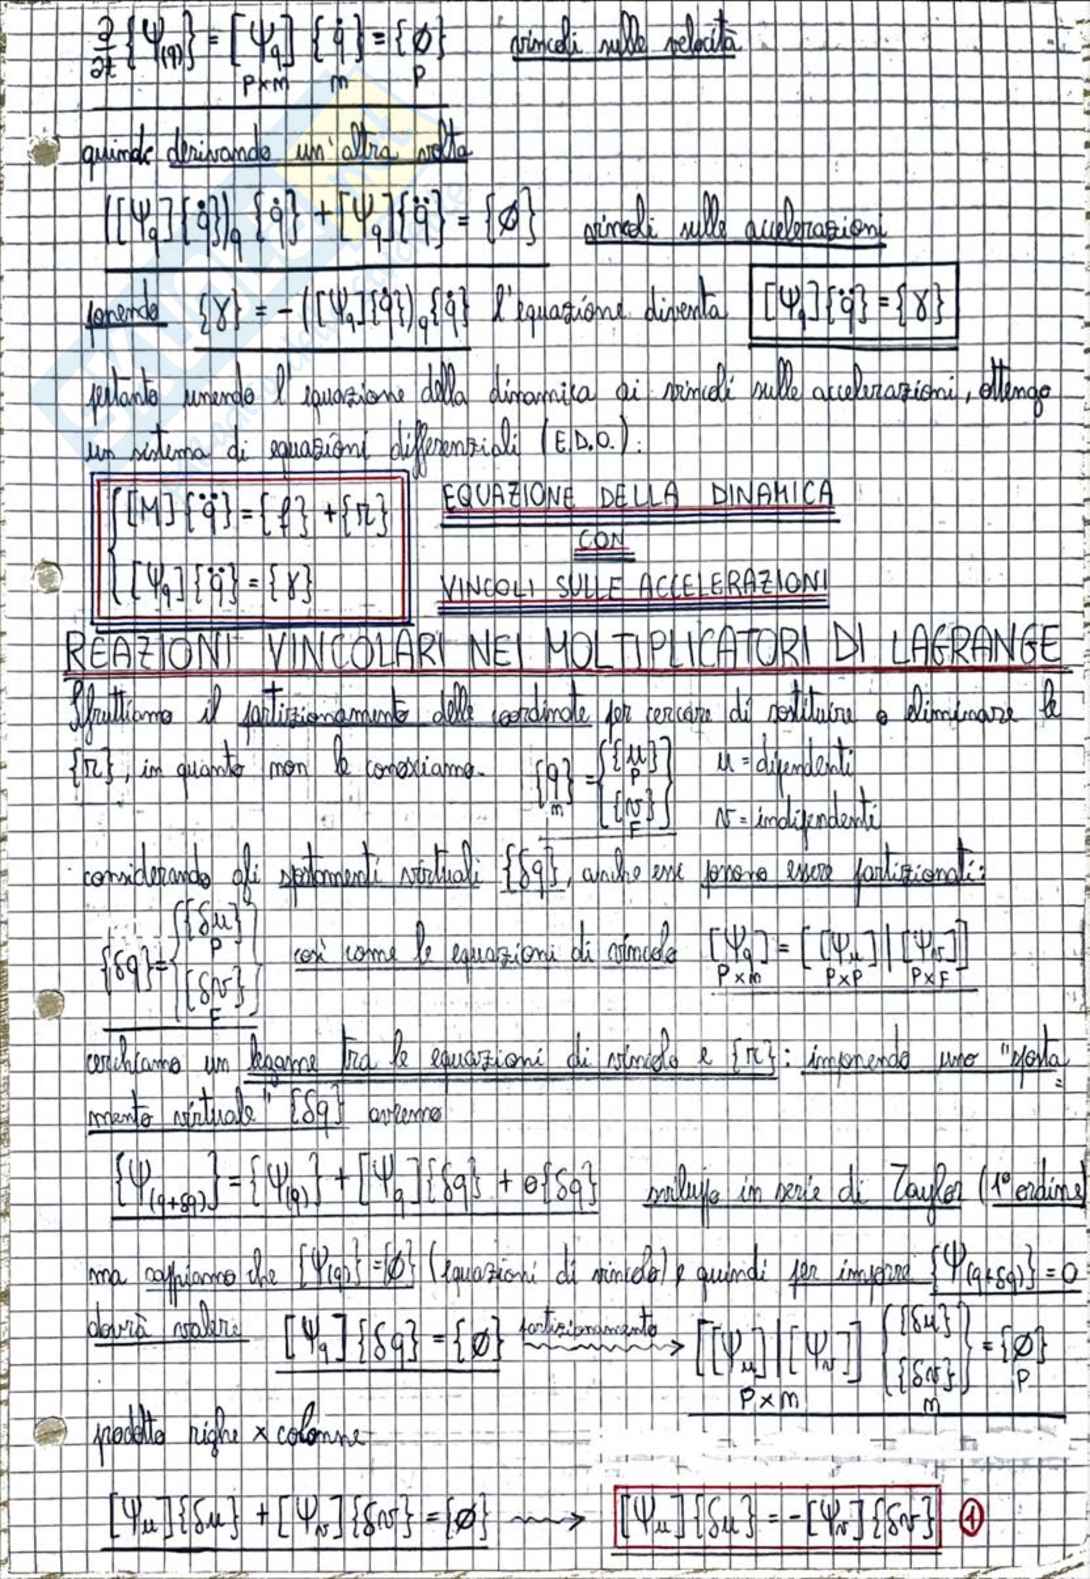 ∂/∂t {Ψ(q)} = [Ψq] {q̇} = {∅} vincoli sulle velocità
P×m m P
quindi derivando un'altra volta
([Ψq]{q̇})q {q̇} + [Ψq]{q̈} = {∅} vincoli sulle accelerazioni
ponendo {γ} = -([Ψq]{q̇})q{q̇} l'equazione diventa [Ψq]{q̈} = {γ}
pertanto unendo l'equazione della dinamica ai vincoli sulle accelerazioni, ottengo
un sistema di equazioni differenziali (E.D.O.):
[M]{q̈} = {f} + {r} EQUAZIONE DELLA DINAMICA
CON
[Ψq]{q̈} = {γ} VINCOLI SULLE ACCELERAZIONI
REAZIONI VINCOLARI NEI MOLTIPLICATORI DI LAGRANGE
Sfruttiamo il partizionamento delle coordinate per cercare di sostituire o eliminare le
{r}, in quanto non le conosciamo. {q} = {{u} {v}} u = dipendenti
m P F v = indipendenti
considerando gli spostamenti virtuali {δq}, anche essi possono essere partizionati:
{δq} = {{δu} {δv}} così come le equazioni di vincolo [Ψq] = [[Ψu] | [Ψv]]
P F P×m P×P P×F
cerchiamo un legame tra le equazioni di vincolo e {r}: imponendo uno "sposta
mento virtuale" {δq} avremo
{Ψ(q+δq)} = {Ψ(q)} + [Ψq]{δq} + o{δq} sviluppo in serie di Taylor (1° ordine)
ma sappiamo che {Ψ(q)} = {∅} (equazioni di vincolo) e quindi per imporre {Ψ(q+δq)} = 0
dovrà valere [Ψq]{δq} = {∅} partizionamento → [[Ψu] | [Ψv]] {{δu} {δv}} = {∅}
P×m m P
prodotto righe × colonne
[Ψu]{δu} + [Ψv]{δv} = {∅} → [Ψu]{δu} = -[Ψv]{δv} 1